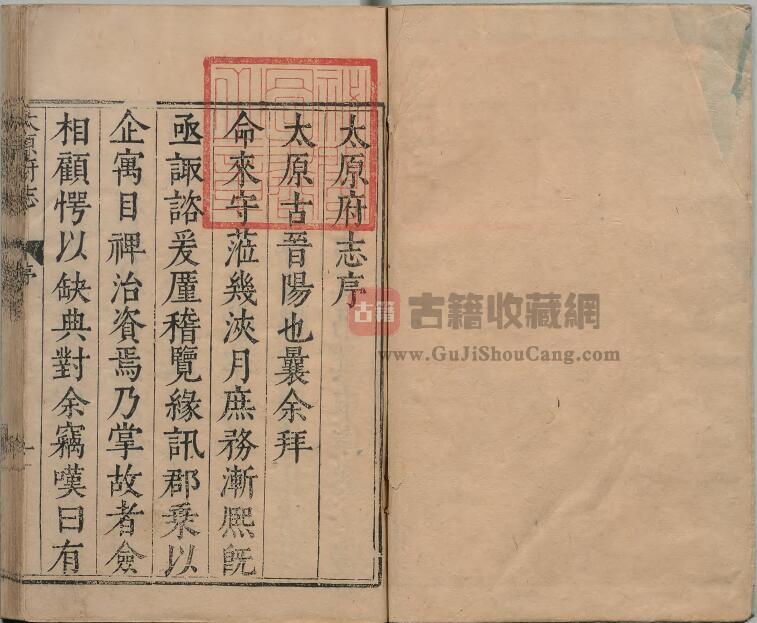 太原府志序
太原古晉陽也曩余拜
命來守蒞幾浹月庶務漸熈旣
亟諏諮爰厪稽覽緣訊郡乗以
企寓目裨治資焉乃掌故者僉
相顧愕以缺典對余竊嘆曰有
太原府志 序 一
古籍 古籍收藏網
www.GuJiShouCang.com